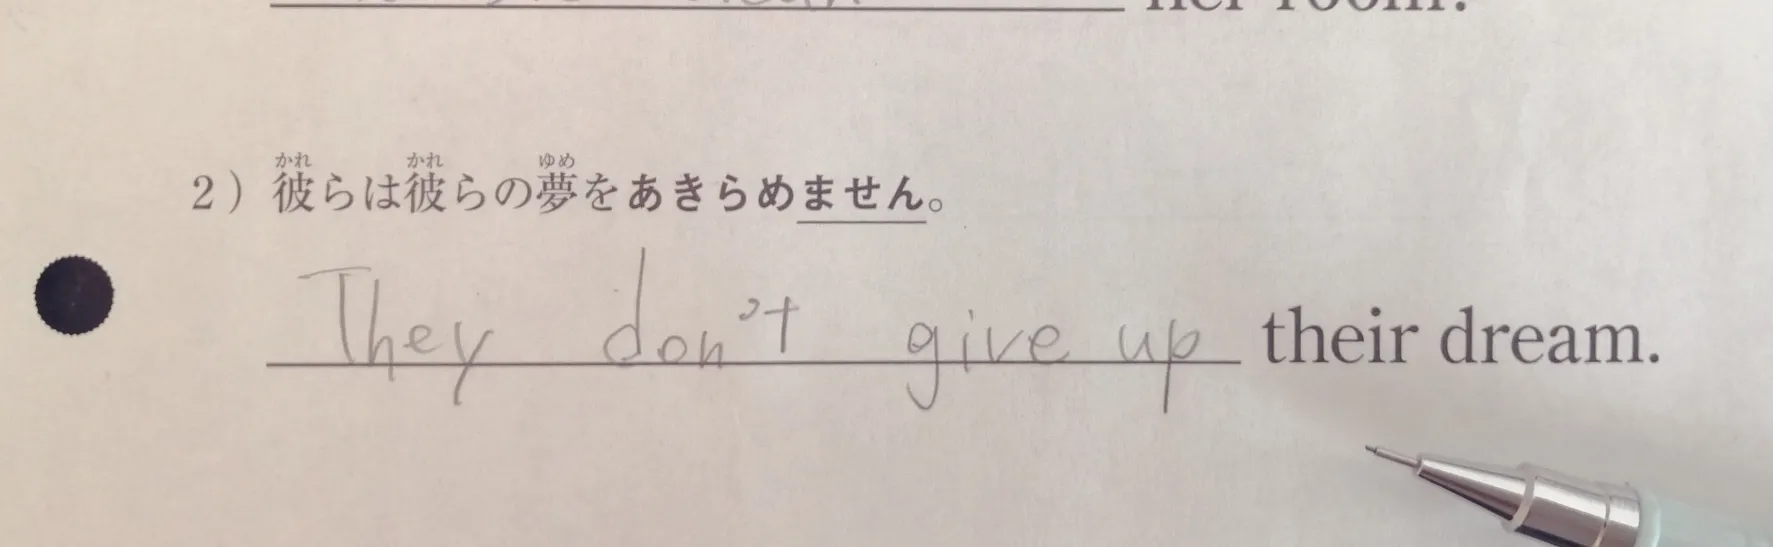 her room.
2) 彼らは彼らの夢をあきらめません。
They don't give up their dream.